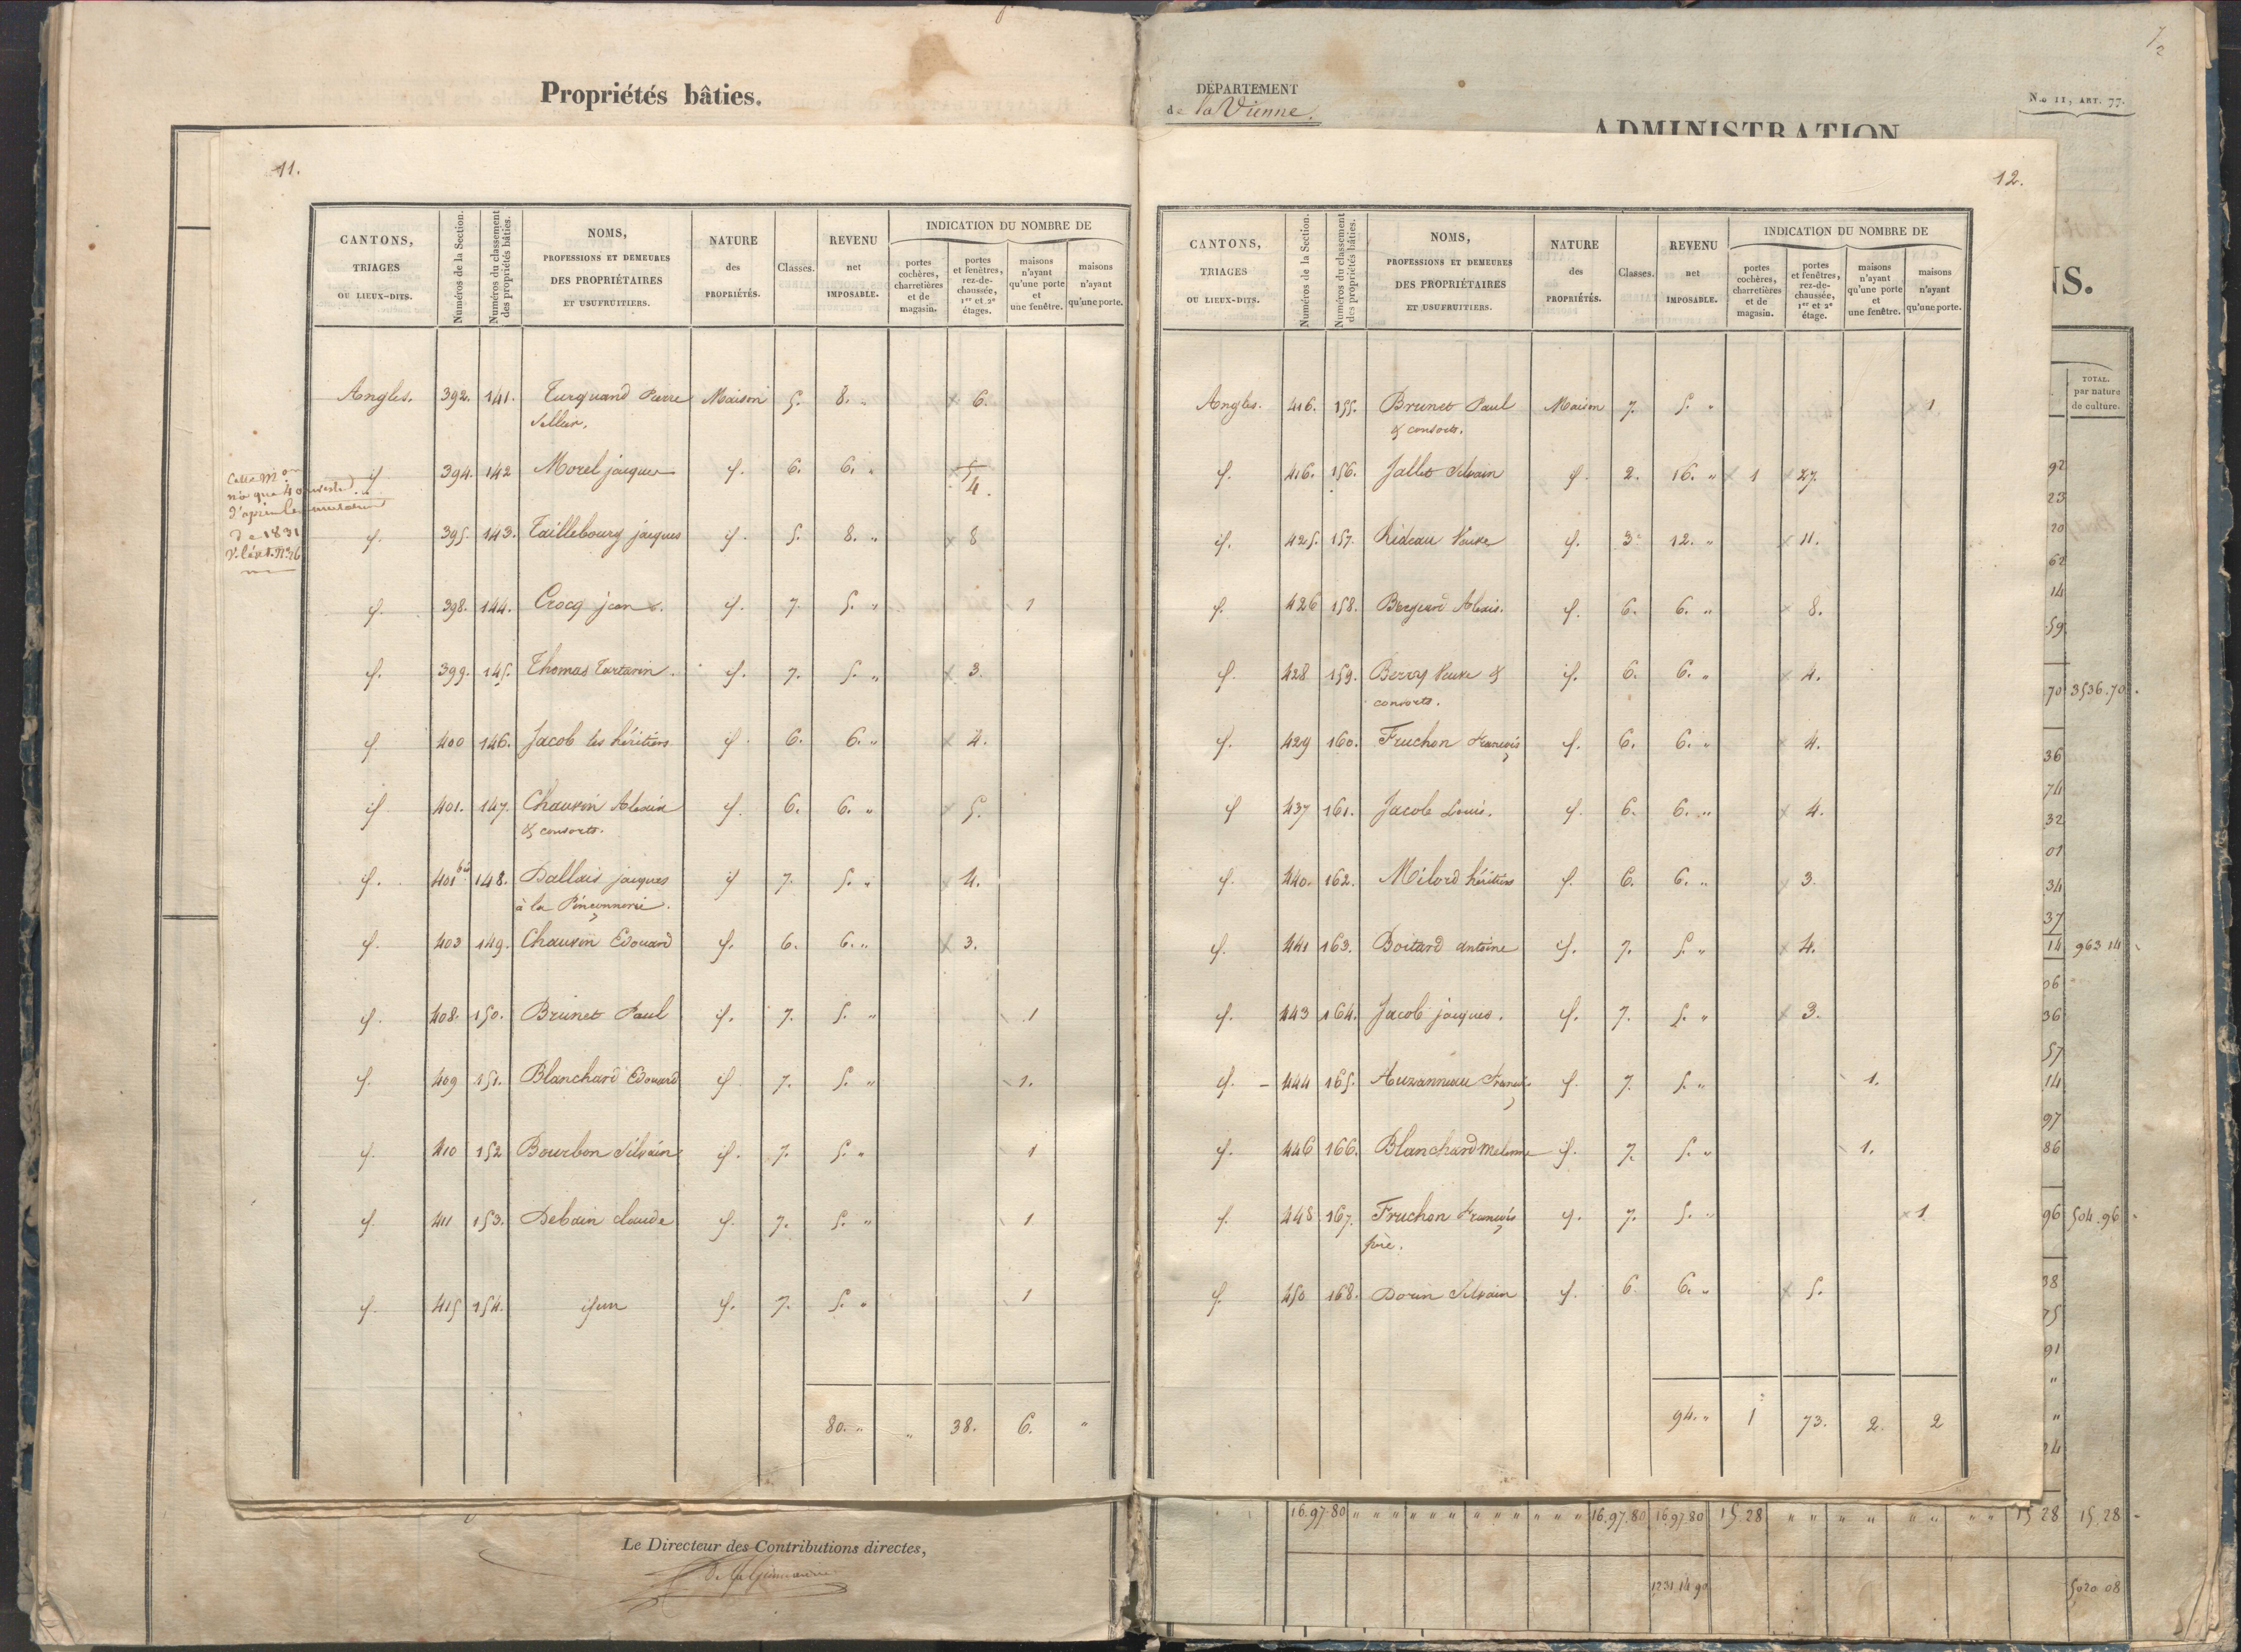 Propriétés bâties.
11.
CANTONS, TRIAGES OU LIEUX-DITS.
Numéros de la Section.
Numéros du classement des propriétés bâties.
NOMS, PROFESSIONS ET DEMEURES DES PROPRIÉTAIRES ET USUFRUITIERS.
NATURE des PROPRIÉTÉS.
Classes.
REVENU net IMPOSABLE.
INDICATION DU NOMBRE DE
portes cochères, charretières et de magasin.
portes et fenêtres, rez-de-chaussée, 1er et 2e étages.
maisons n'ayant qu'une porte et une fenêtre.
maisons n'ayant qu'une porte.
Angles. 392. 141. Turquand Pierre Maison 5. 8. " x 6.
Sellier.
Cette Mon
n'a que 4 ouvertures
de 1831
if 394. 142 Morel jacques if. 6. 6. " x 5 4.
if. 395. 143. Taillebourg jacques if. 5. 8. " x 8
if. 398. 144. Crocq jean if. 7. 5. " 1
if. 399. 145. Thomas Tartarin. if. 7. 5. " x 3.
if. 400 146. Jacob les héritiers if. 6. 6. " x 4.
if 401. 147. Chauvin Alexis if. 6. 6. " x 5.
& consorts.
if. 401 bis 148. Dallais jacques if 7. 5. " x 4.
à la Pinçonnerie.
if. 403 149. Chauvin Edouard if. 6. 6. " x 3.
if. 408. 150. Brunet Paul if. 7. 5. " 1
if. 409 151. Blanchard Edouard if 7. 5. " 1.
if. 410 152 Bourbon Silvain if. 7. 5. " 1
if. 411 153. Debain claude if. 7. 5. " 1
if. 415 154. if un if. 7. 5. " 1
80. " " 38. 6. "
Le Directeur des Contributions directes,
DÉPARTEMENT
de la Vienne.
No 11, ART. 77.
ADMINISTRATION
NS.
12.
CANTONS, TRIAGES OU LIEUX-DITS.
Numéros de la Section.
Numéros du classement des propriétés bâties.
NOMS, PROFESSIONS ET DEMEURES DES PROPRIÉTAIRES ET USUFRUITIERS.
NATURE des PROPRIÉTÉS.
Classes.
REVENU net IMPOSABLE.
INDICATION DU NOMBRE DE
portes cochères, charretières et de magasin.
portes et fenêtres, rez-de-chaussée, 1er et 2e étage.
maisons n'ayant qu'une porte et une fenêtre.
maisons n'ayant qu'une porte.
Angles. 416. 155. Brunet Paul Maison 7. 5. " x 1
& consorts.
if. 416. 156. Jallet Silvain if. 2. 16. " x 1 x 27.
if. 425. 157. Rideau Veuve if. 3. 12. " x 11.
if. 426 158. Alexis. if. 6. 6. " x 8.
if. 428 159. Veuve & if. 6. 6. " x 4.
consorts.
if. 429 160. Fruchon François if. 6. 6. " x 4.
if 437 161. Jacob Louis. if. 6. 6. " x 4.
if. 440. 162. Milord héritiers if. 6. 6. " x 3.
if. 441 163. Boitard antoine if. 7. 5. " x 4.
if. 443 164. Jacob jacques. if. 7. 5. " x 3.
if. - 444 165. Auzanneau François if. 7. 5. " 1.
if. 446 166. Blanchard if. 7. 5. " 1.
if. 448 167. Fruchon François if. 7. 5. " x 1
père.
if. 450 168. Dorin Silvain if. 6 6. " x 5.
94. " 1 73. 2. 2
TOTAL.
par nature
de culture.
92
23
20
62
14
59
70 3536.70.
36
74
32
01
34
37
14 963 14
06
36
57
14
97
86
96 504.96
38
75
91
"
"
24
16.97.80 " " " " " " " " " " " " 16.97.80 16.97.80 15.28 " " " " " " " " 15 28 15.28
1231.14 90 5020 08